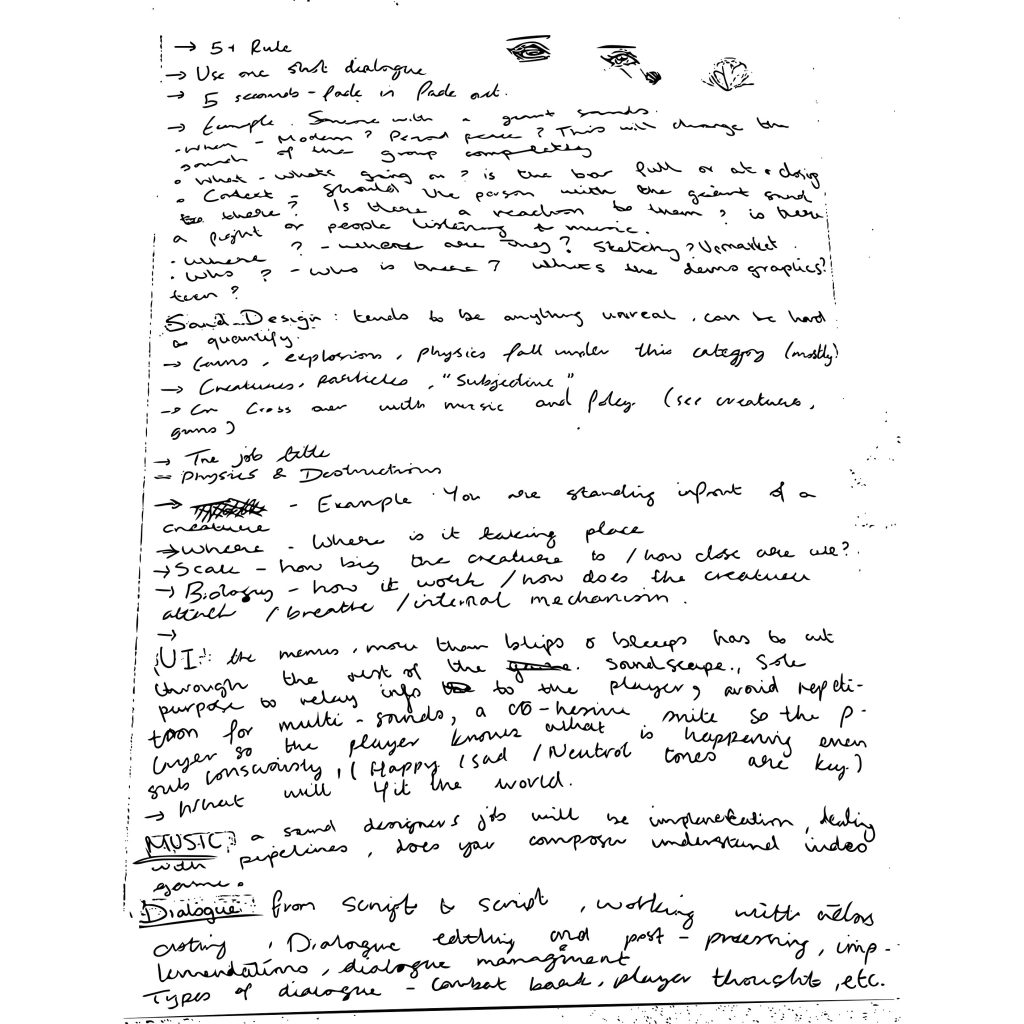 → 5+ Rule
→ Use one shot dialogue
→ 5 seconds - fade in fade out.
→ Example. Someone with a giant sounds.
• When - Modern? Period piece? This will change the
sounds of the group completely
• What - what's going on? is the bar full or at closing
• Context - Should the person with the giant sound
be there? Is there a reaction to them? is there
a fight or people listening to music.
• Where ? - where are they? Sketchy? Upmarket.
• Who ? - who is there? What's the demographics?
teen?
Sound Design: tends to be anything unreal, can be hard
to quantify.
→ Guns, explosions, physics fall under this category (mostly)
→ Creatures, particles, "Subjective"
→ Can cross over with music and foley. (see creatures,
guns)
→ The job title
- Physics & Destructions
→ - Example. You are standing infront of a
creature
→ Where - Where is it taking place
→ Scale - how big the creature is / how close are we?
→ Biology - how it work / how does the creature
attack / breathe / internal mechanism.
→
UI: the menus, more than blips & bleeps has to cut
through the rest of the game. Soundscape., Sole
purpose to relay info to the player, avoid repeti-
tion for multi-sounds, a co-hesive suite so the p-
layer so the player knows what is happening even
sub consciously, (Happy / sad / Neutral tones are key.)
→ What will fit the world.
MUSIC: a sound designers job will be implementation, dealing
with pipelines, does your composer understand video
game.
Dialogue: from script to script, working with actors
casting, Dialogue editing and post-processing, imp-
lementations, dialogue managment
Types of dialogue - combat bark, player thoughts, etc.